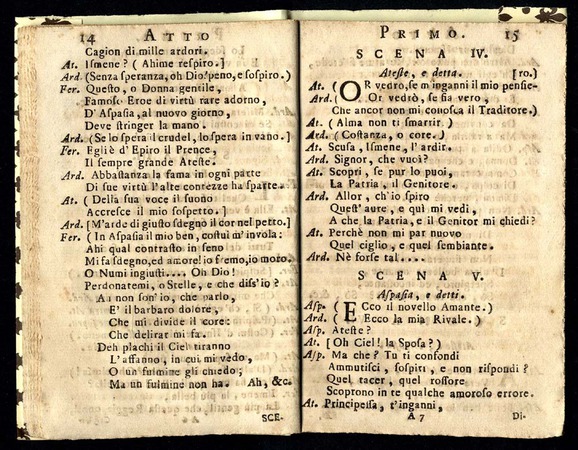 14 ATTO
Cagion di mille ardori.
At. Ismene? ( Ahime respiro.]
Ard. (Senza speranza, oh Dio! peno, e sospiro.)
Fer. Questo, o Donna gentile,
Famoso Eroe di virtù rare adorno,
D' Aspasia, al nuovo giorno,
Deve stringer la mano.
Ard. (Se lo spera il crudel, lo spera in vano.]
Fer. Egli è d'Epiro il Prence,
Il sempre grande Ateste.
Ard. Abbastanza la fama in ogni parte
Di sue virtù l'alte contezze hà sparte.
At. (Della sua voce il suono
Accresce il mio sospetto.]
Ard. [M'arde di giusto sdegno il cor nel petto.]
Fer. ( In Aspasia il mio ben, costui m'invola:
Ahi qual contrasto in seno
Mi fà sdegno, ed amore! io fremo, io moro.
O Numi ingiusti.... Oh Dio!
Perdonatemi, o Stelle, e che diss'io ?
Ah non son'io, che parlo,
E' il barbaro dolore,
Che mi divide il core:
Che delirar mi fa.
Deh plachi il Ciel tiranno
L'affanno, in cui mi vedo,
O un fulmine gli chiedo;
Ma un fulmine non ha. Ah, &c.
SCE-
PRIMO. 15
SCENA IV.
Ateste, e detta. [ro.)
At. ( OR vedrò, se m'inganni il mio pensie-
Ard. ( Or vedrò, se fia vero,
Che ancor non mi conosca il Traditore.)
At. ( Alma non ti smarrir. )
Ard. ( Costanza, o core. )
At. Scusa, Ismene, l' ardir.
Ard. Signor, che vuoi?
At. Scopri, se pur lo puoi,
La Patria, il Genitore.
Ard. Allor, ch'io spiro
Quest' aure, e quì mi vedi,
A che la Patria, e il Genitor mi chiedi?
At. Perchè non mi par nuovo
Quel ciglio, e quel sembiante.
Ard. Nè forse tal....
SCENA V.
Aspasia, e detti.
Asp. ( ECco il novello Amante. )
Ard. ( Ecco la mia Rivale. )
Asp. Ateste?
At. [Oh Ciel! la Sposa? )
Asp. Ma che? Tu ti confondi
Ammutisci, sospiri, e non rispondi ?
Quel tacer, quel rossore
Scoprono in te qualche amoroso errore.
At. Principessa, t'inganni,
A 7 Di-